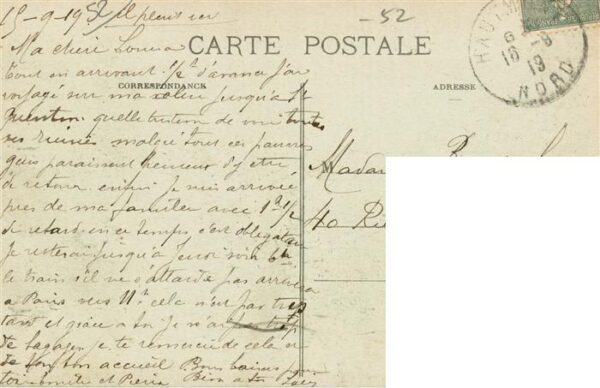 15-9-19 il pleut ici
-52
Ma chère Louisa
CARTE POSTALE
tout en arrivant 1/2 d'avance j'ai
voyagé sur ma jusqu'à St
CORRESPONDANCE
ADRESSE
Quentin quelle tristesse de voir toutes
ses ruines malgré tout ces pauvres
gens paraissent heureux d'y être
de retour enfin je suis arrivée
près de ma famille avec 1h 1/2
de retard en ce temps c'est obligatoire
je resterai jusqu'à jeudi soir 6h
le train s'il ne s'attarde pas arrivera
à Paris vers 11h cela n'est pas très
tard et grâce à toi je n'ai pas trop
de bagages je te remercie de cela et
de ton bon accueil Bons baisers pour
toi et Pierre Bien à toi
Madame
40 Rue
HAUTMONT
16 -9
19
NORD